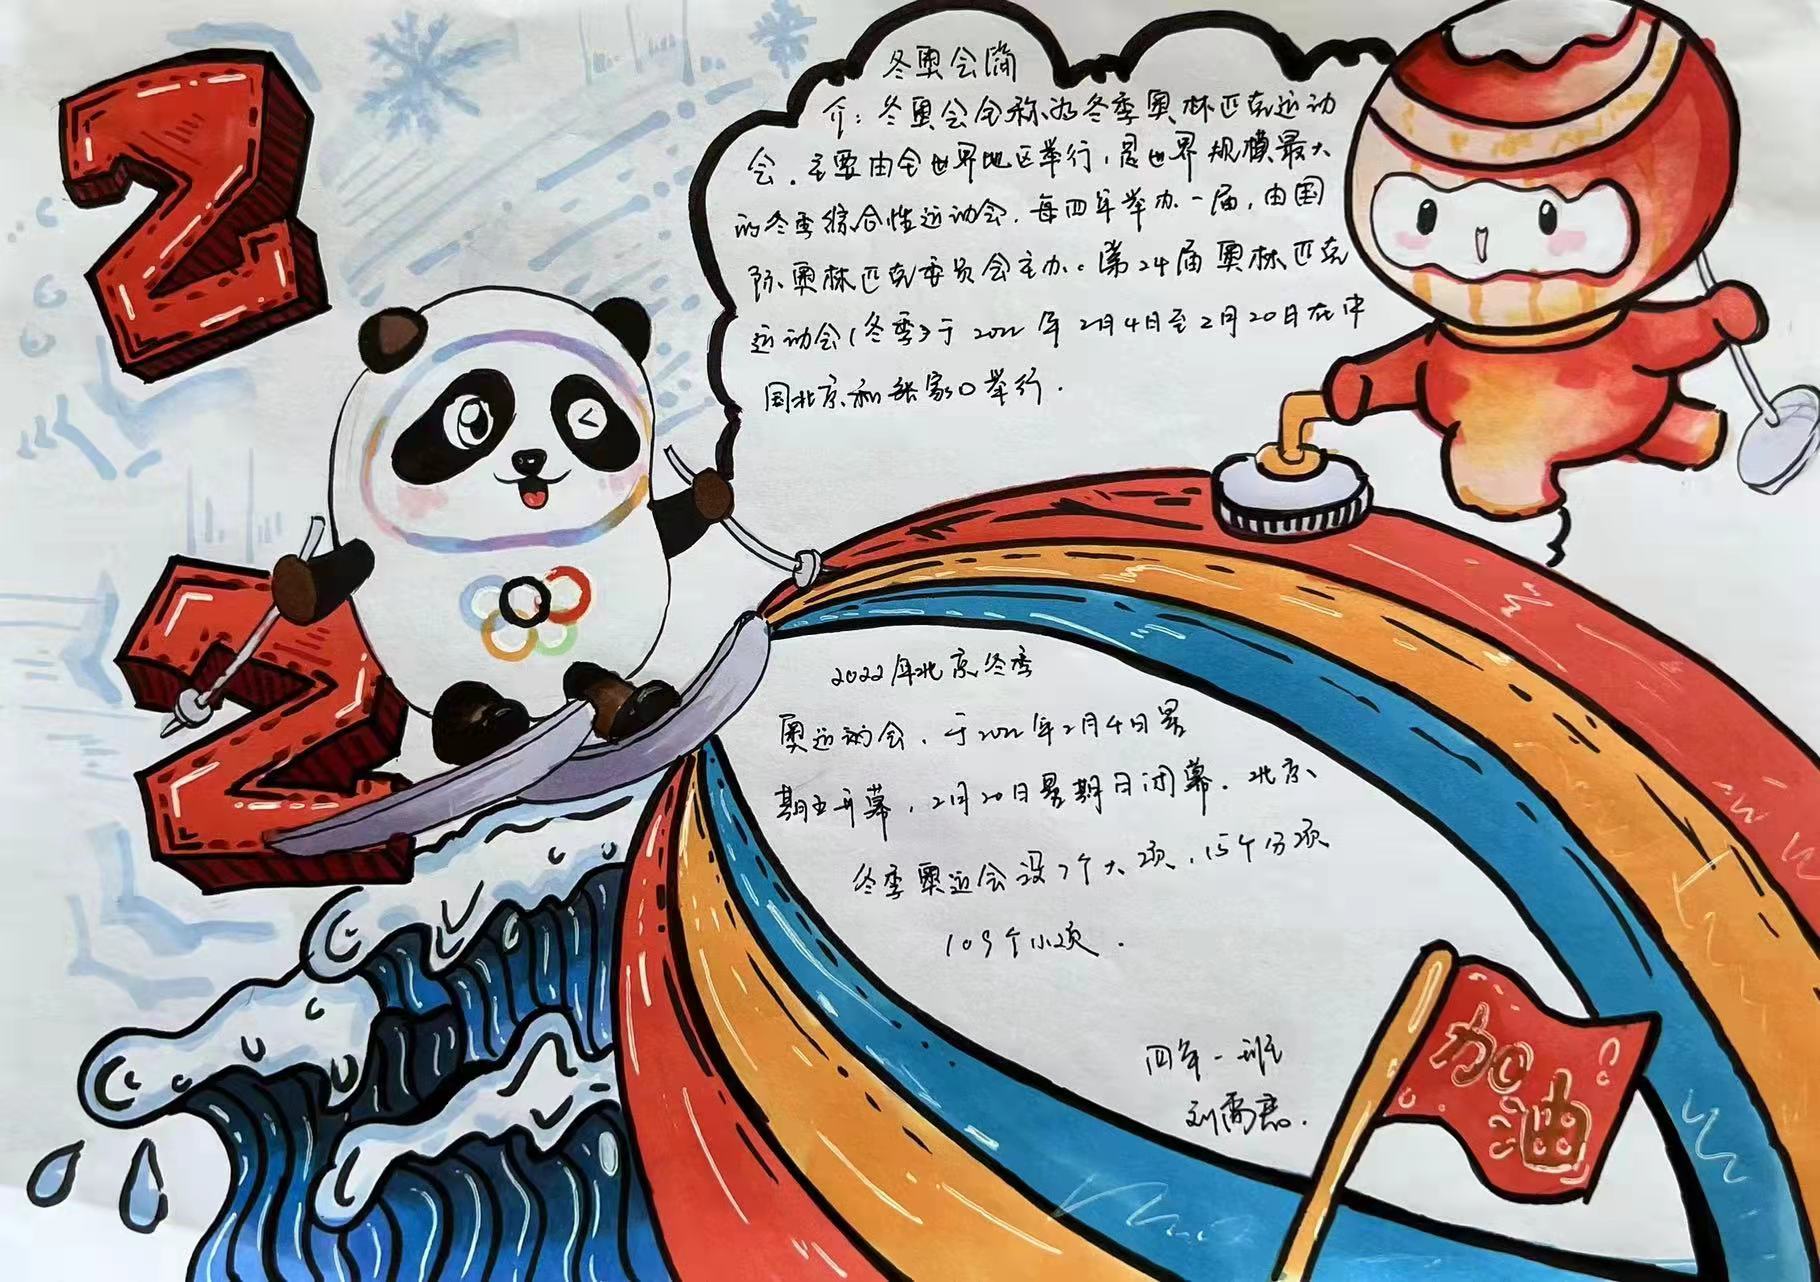 2
2
冬奥会简
介：冬奥会全称为冬季奥林匹克运动
会．主要由全世界地区举行，是世界规模最大
的冬季综合性运动会，每四年举办一届，由国
际奥林匹克委员会主办。第24届奥林匹克
运动会(冬季)于2022年2月4日至2月20日在中
国北京和张家口举行．
2022年北京冬季
奥运动会，于2022年2月4日星
期五开幕，2月20日星期日闭幕．北京
冬季奥运会设7个大项，15个分项
109个小项．
四年一班
刘
加油